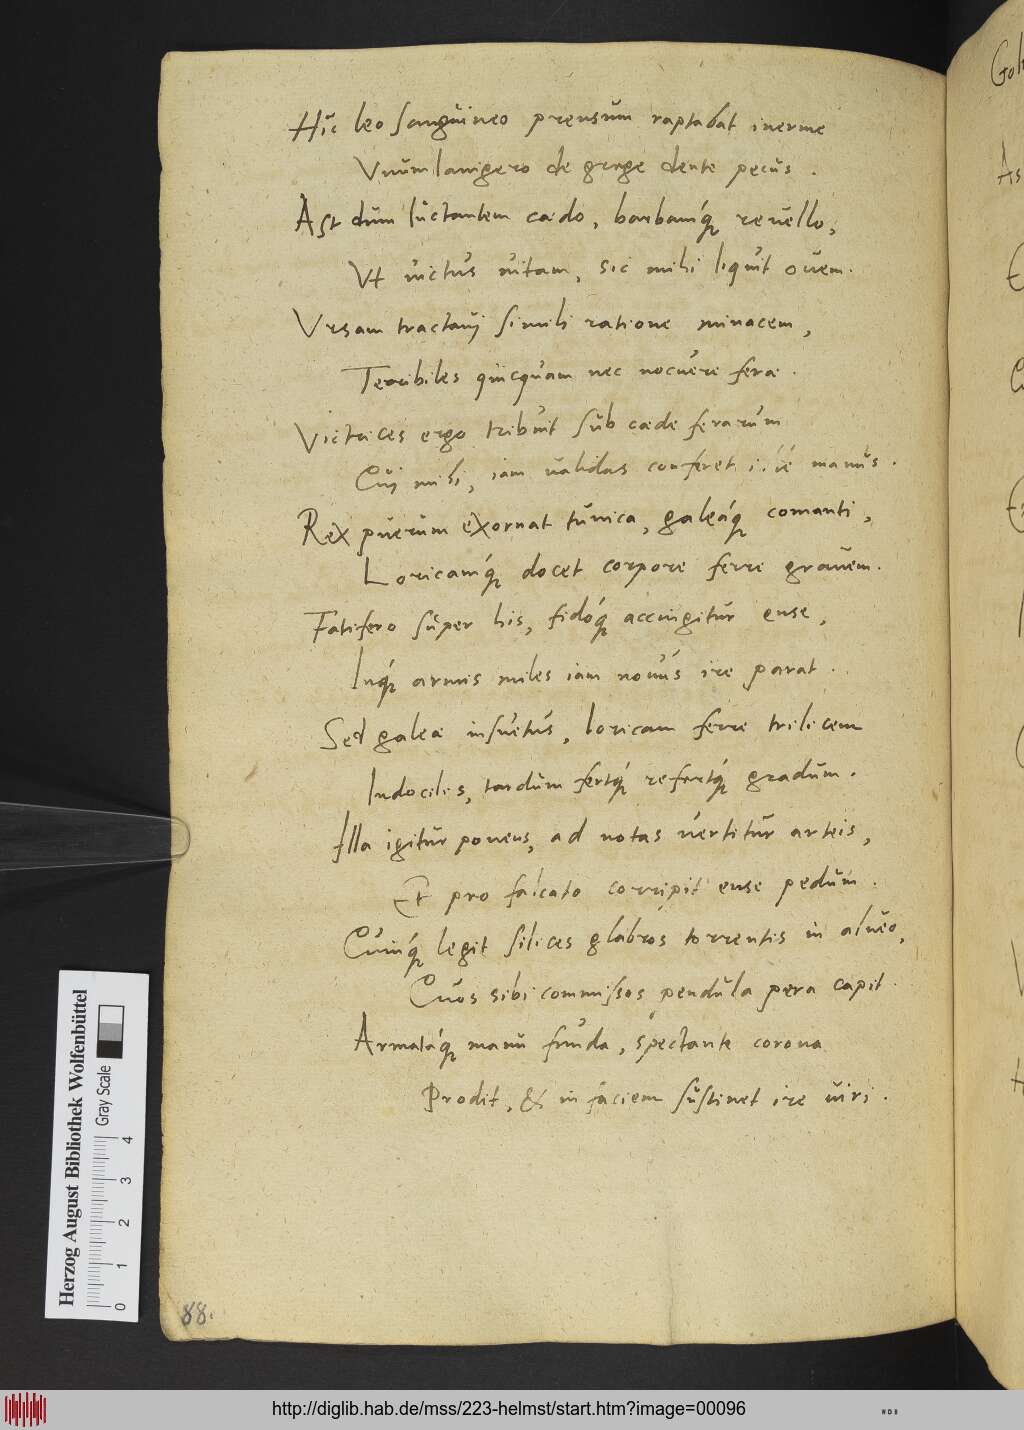 Hic leo sanguineo prensum raptabat inerme
Vnum lanigero de grege dente pecus.
Ast dum luctantem cædo, barbamq́ reuello,
Vt uictus uitam, sic mihi liquit ouem.
Vrsam tractaui simili ratione minacem,
Terribiles quicquam nec nocuere feræ.
Victrices ergo tribuit sub cæde ferarum
Cui mihi, iam ualidas conferet ille manus.
Rex puerum exornat tunica, galeáq comanti,
Loricamq́ docet corpore ferre grauem.
Fatifero super his, fidóq accingitur ense,
Inq́ armis miles iam nouus ire parat.
Sed galeæ insuetus, loricam ferre trilicem
Indocilis, tardum fertq́ refertq́ gradum.
Illa igitur ponens, ad notas uertitur arteis,
Et pro falcato corripit ense pedum.
Cuinq́ legit silices glabros torrentis in alueo,
Cuos sibi commissos pendula pera capit.
Armatáq manu funda, spectante corona
Prodit, & in faciem sustinet ire uiri.
88.
Herzog August Bibliothek Wolfenbüttel
Gray Scale
0 1 2 3 4
Gol
As
http://diglib.hab.de/mss/223-helmst/start.htm?image=00096